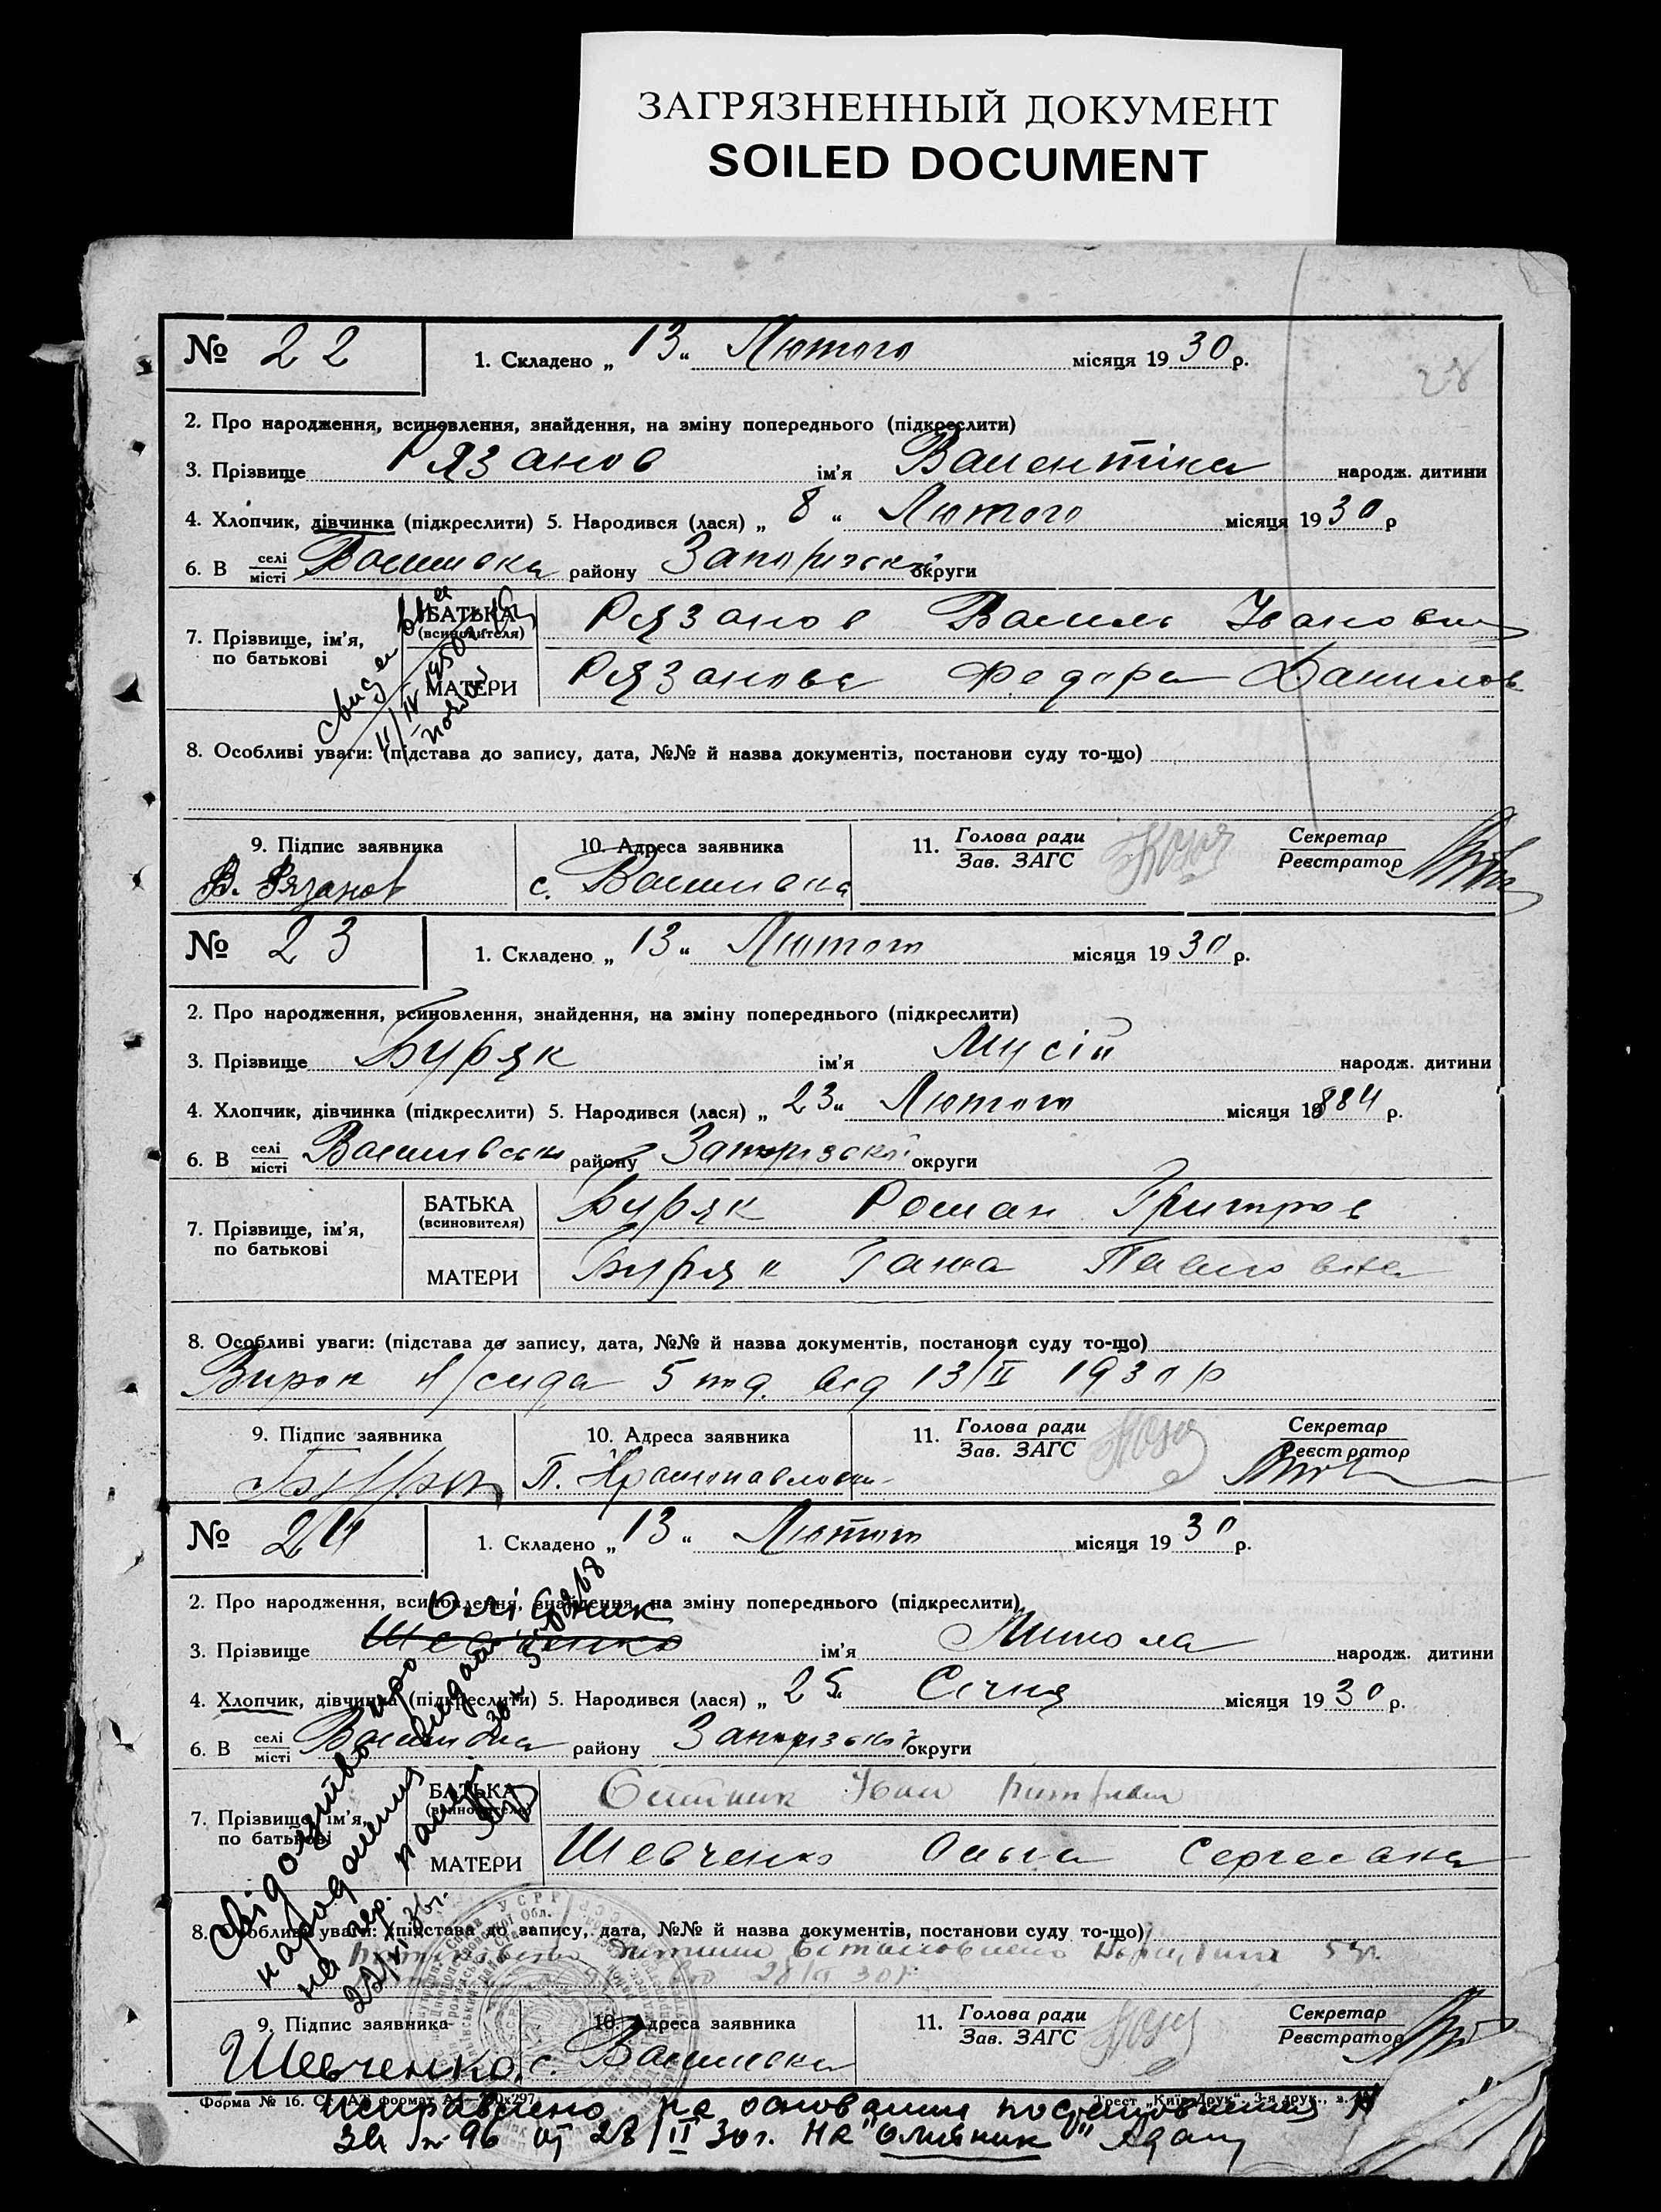 ЗАГРЯЗНЕННЫЙ ДОКУМЕНТ
SOILED DOCUMENT
28
№ 22 1. Складено „ 13 “ Лютого місяця 1930 р.
2. Про народження, всиновлення, знайдення, на зміну попереднього (підкреслити)
3. Прізвище Рязанов ім'я Валентіна народж. дитини
4. Хлопчик, дівчинка (підкреслити) 5. Народився (лася) „ 8 “ Лютого місяця 1930 р
6. В селі/місті Василівка району Запорізької округи
7. Прізвище, ім'я, по батькові
БАТЬКА (всиновителя) Рязанов Василь Іванович
МАТЕРИ Рязанова Федора Данилов
8. Особливі уваги: (підстава до запису, дата, №№ й назва документів, постанови суду то-що)
9. Підпис заявника 10. Адреса заявника 11. Голова ради/Зав. ЗАГС Секретар/Реєстратор
В. Рязанов с. Василівка
№ 23 1. Складено „ 13 “ Лютого місяця 1930 р.
2. Про народження, всиновлення, знайдення, на зміну попереднього (підкреслити)
3. Прізвище Буряк ім'я Мусій народж. дитини
4. Хлопчик, дівчинка (підкреслити) 5. Народився (лася) „ 23 “ Лютого місяця 1884 р.
6. В селі/місті району Запорізької округи
7. Прізвище, ім'я, по батькові
БАТЬКА (всиновителя) Буряк Роман Григоров
МАТЕРИ Буряк Ганна Павловна
8. Особливі уваги: (підстава до запису, дата, №№ й назва документів, постанови суду то-що)
Вирок н/суда 5 від 13/II 1930 р
9. Підпис заявника 10. Адреса заявника 11. Голова ради/Зав. ЗАГС Секретар/Реєстратор
№ 24 1. Складено „ 13 “ Лютого місяця 1930 р.
2. Про народження, всиновлення, знайдення, на зміну попереднього (підкреслити)
Олійник
3. Прізвище Шевченко ім'я Микола народж. дитини
4. Хлопчик, дівчинка (підкреслити) 5. Народився (лася) „ 25 “ Січня місяця 1930 р.
6. В селі/місті Василівка району Запорізької округи
7. Прізвище, ім'я, по батькові
БАТЬКА (всиновителя)
МАТЕРИ Шевченко Ольга Сергеевна
8. Особливі уваги: (підстава до запису, дата, №№ й назва документів, постанови суду то-що)
9. Підпис заявника 10. Адреса заявника 11. Голова ради/Зав. ЗАГС Секретар/Реєстратор
Шевченко с. Василівка
Форма № 16. Трест „Київ-Друк“, 3-я друк.,
Исправлено на основании постановления
за № 96 от 28/II 30 г. на "Олійник"